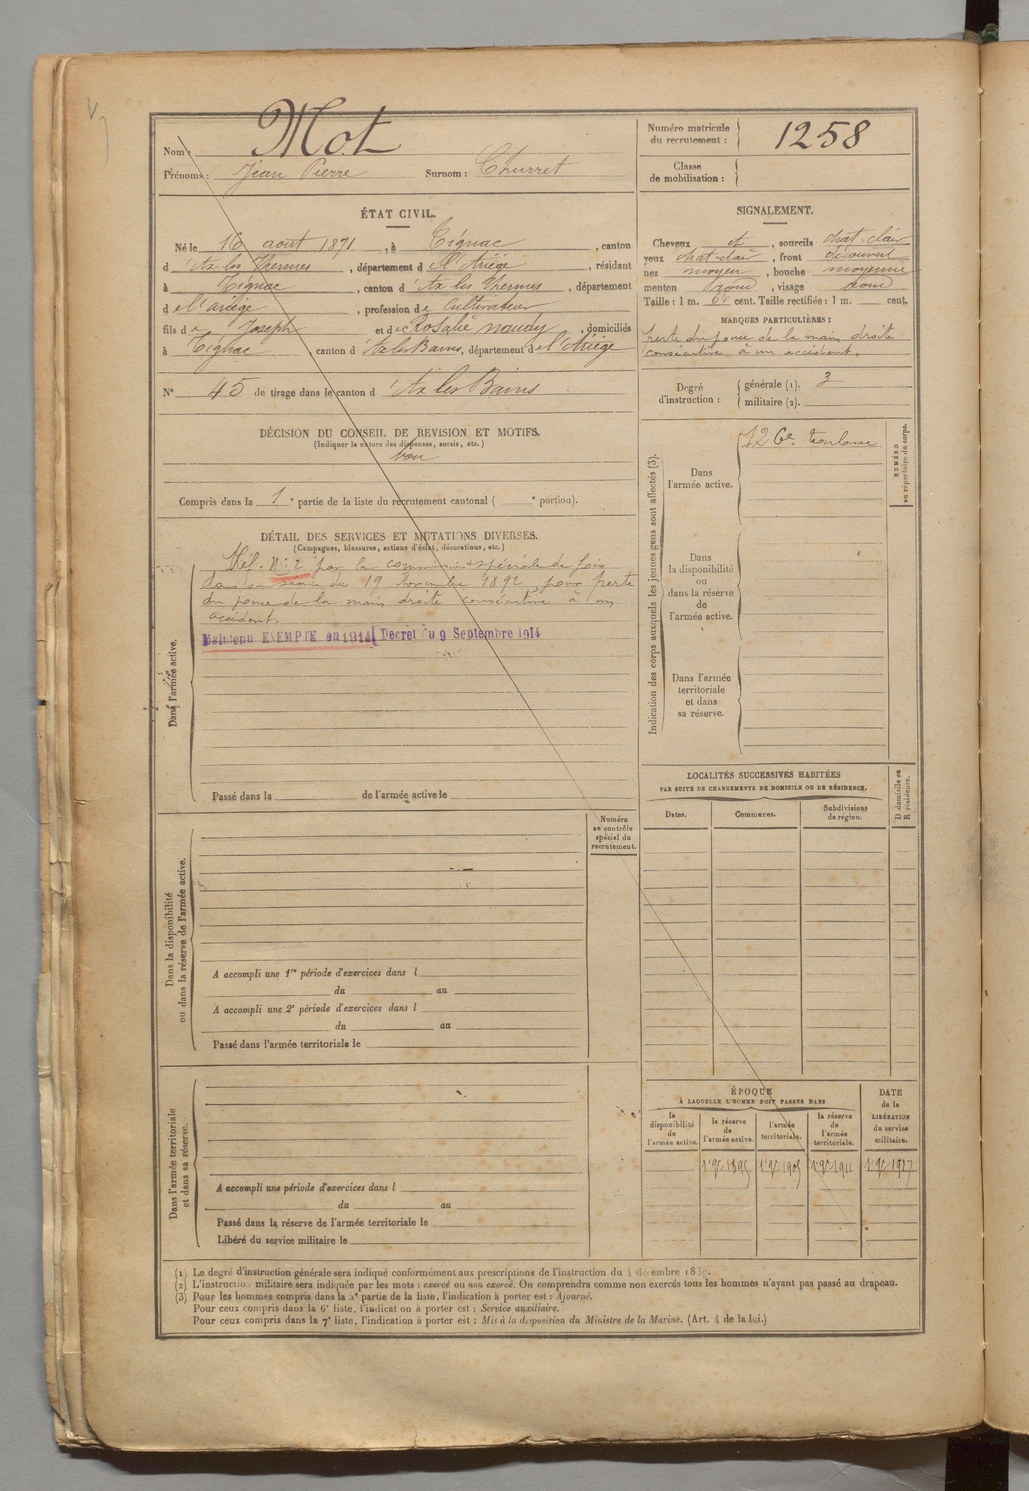 Nom : Mot
Prénoms : Jean Pierre Surnom : Churret
Numéro matricule du recrutement : 1258
Classe de mobilisation :
ÉTAT CIVIL.
Né le 16 aout 1871, à Tignac, canton
d'Ax les Thermes, département de l'Ariège, résidant
à Tignac, canton d'Ax les Thermes, département
de l'ariège, profession de Cultivateur
fils de Joseph et de Rosalie naudy, domiciliés
à Tignac, canton d'Ax les Bains, département de l'Ariège
N° 45 de tirage dans le canton d'Ax les Bains
SIGNALEMENT.
Cheveux et, sourcils chat-clair
yeux chat-clair, front découvert
nez moyen, bouche moyenne
menton rond, visage rond
Taille : 1 m. cent. Taille rectifiée : 1 m. cent.
MARQUES PARTICULIÈRES :
Perte du pouce de la main droite
consécutive à un accident.
Degré d'instruction : générale (1). 3
militaire (2).
DÉCISION DU CONSEIL DE REVISION ET MOTIFS.
(Indiquer la nature des dispenses, sursis, etc.)
bon
Compris dans la 1e partie de la liste du recrutement cantonal ( e portion).
DÉTAIL DES SERVICES ET MUTATIONS DIVERSES.
(Campagnes, blessures, actions d'éclat, décorations, etc.)
Dans l'armée active.
Réf. N° 2 par la commission spéciale de foix
dans sa séance du 19 Novembre 1892 pour perte
du pouce de la main droite consécutive à un
accident.
Maintenu EXEMPTÉ en 1914 Décret du 9 Septembre 1914
Passé dans la de l'armée active le
Indication des corps auxquels les jeunes gens sont affectés (3).
NUMÉRO au répertoire du corps.
Dans l'armée active.
12 Ge. Toulouse
Dans la disponibilité ou dans la réserve de l'armée active.
Dans l'armée territoriale et dans sa réserve.
LOCALITÉS SUCCESSIVES HABITÉES
PAR SUITE DE CHANGEMENTS DE DOMICILE OU DE RÉSIDENCE.
Dates. Communes. Subdivisions de région. D domicile ou R résidence.
Numéro au contrôle spécial du recrutement.
Dans la disponibilité ou dans la réserve de l'armée active.
A accompli une 1re période d'exercices dans l
du au
A accompli une 2e période d'exercices dans l
du au
Passé dans l'armée territoriale le
Dans l'armée territoriale et dans sa réserve.
A accompli une période d'exercices dans l
du au
Passé dans la réserve de l'armée territoriale le
Libéré du service militaire le
ÉPOQUE
À LAQUELLE L'HOMME DOIT PASSER DANS
la disponibilité de l'armée active.
la réserve de l'armée active.
l'armée territoriale.
la réserve de l'armée territoriale.
DATE de la LIBÉRATION du service militaire.
1895 1905 1911 1917
(1) Le degré d'instruction générale sera indiqué conformément aux prescriptions de l'instruction du 4 décembre 1889.
(2) L'instruction militaire sera indiquée par les mots : exercé ou non exercé. On comprendra comme non exercés tous les hommes n'ayant pas passé au drapeau.
(3) Pour les hommes compris dans la 5e partie de la liste, l'indication à porter est : Ajourné.
Pour ceux compris dans la 6e liste, l'indication à porter est : Service auxiliaire.
Pour ceux compris dans la 7e liste, l'indication à porter est : Mis à la disposition du Ministre de la Marine. (Art. 4 de la loi.)